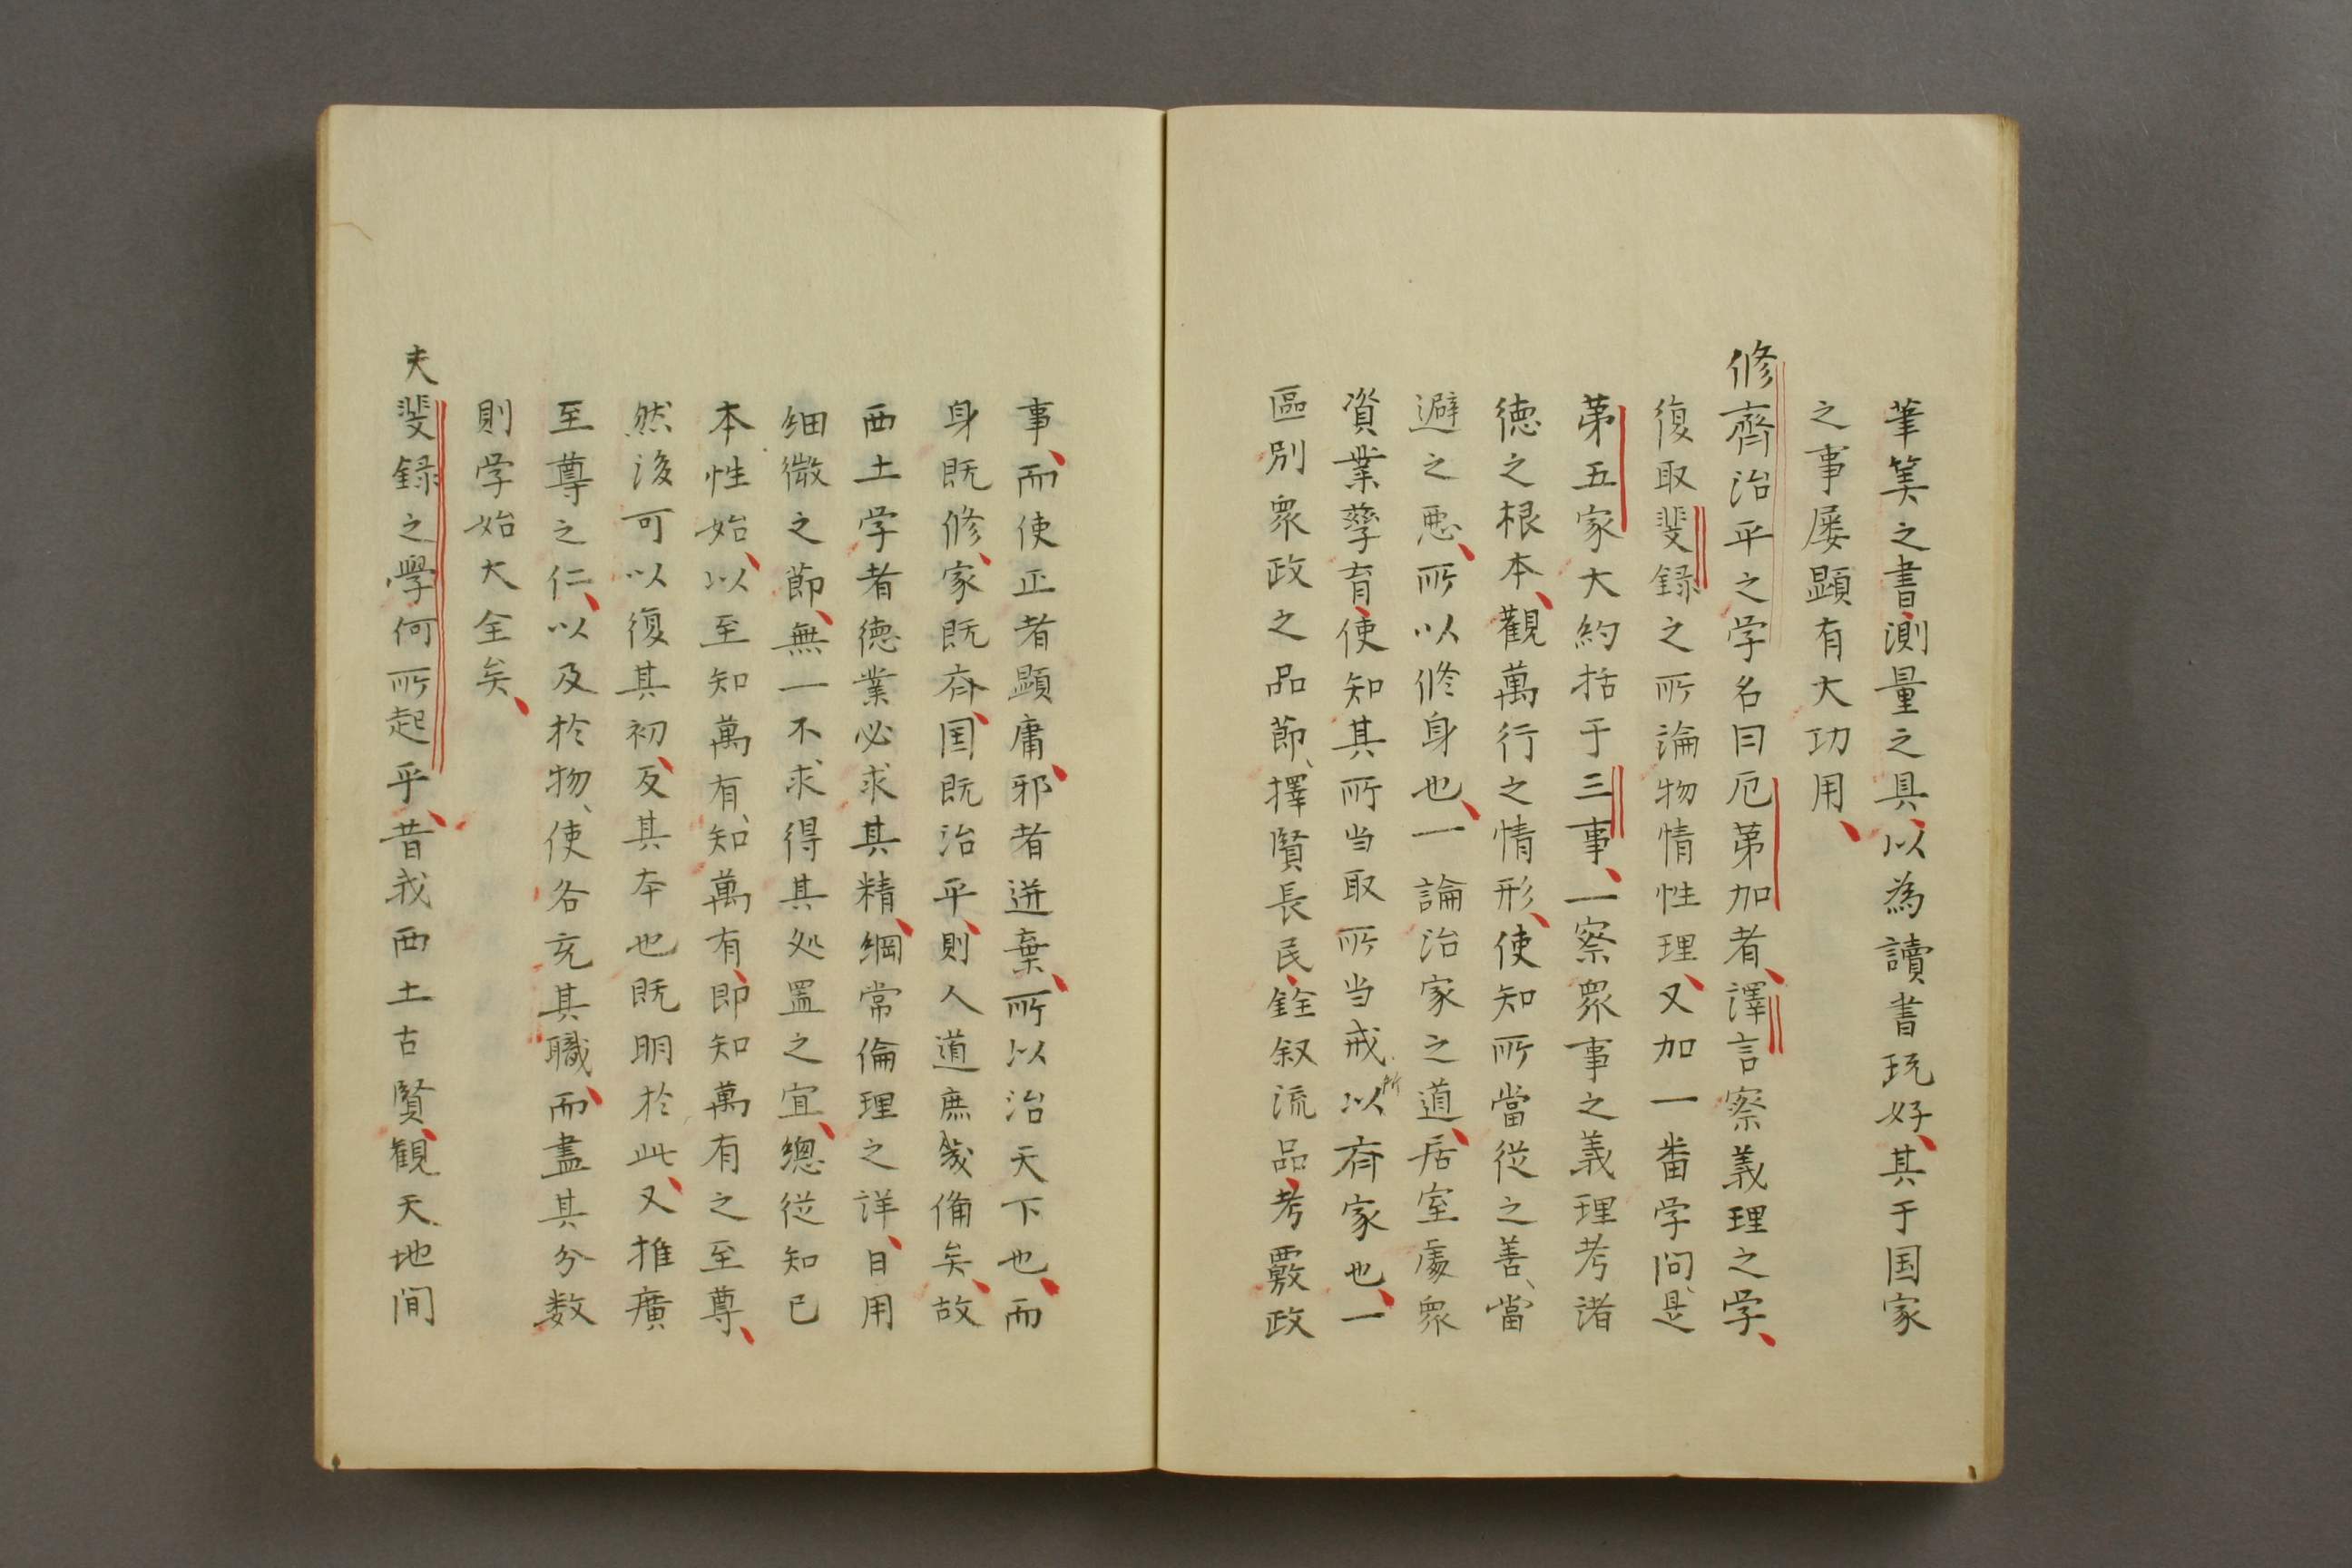 筆筭之書、測量之具、以為讀書玩好、其于国家
之事屡顕有大功用、
修齊治平之学名曰厄苐加者、譯言察義理之学、
復取斐録之所論物情性理、又加一番学问、是
苐五家大約括于三事、一察衆事之義理考諸
徳之根本、觀萬行之情形、使知所當從之善、當
避之悪、所以修身也、一論治家之道、居室處衆
資業孳育、使知其所当取所当戒以所斉家也、一
區別衆政之品節、擇賢長民、銓叙流品、考覈政
事、而使正者顕庸、邪者迸棄、所以治天下也、而
身既修、家既斉、国既治平、則人道庶幾俻矣、故
西土学者徳業必求其精、綱常倫理之詳、日用
细微之節、無一不求得其処置之宜、總從知己
本性始、以至知萬有、知萬有、即知萬有之至尊、
然後可以復其初、反其本也既明於此、又推廣
至尊之仁、以及於物、使各充其職、而盡其分数
則学始大全矣、
夫斐録之學何所起乎、昔我西土古賢、観天地间